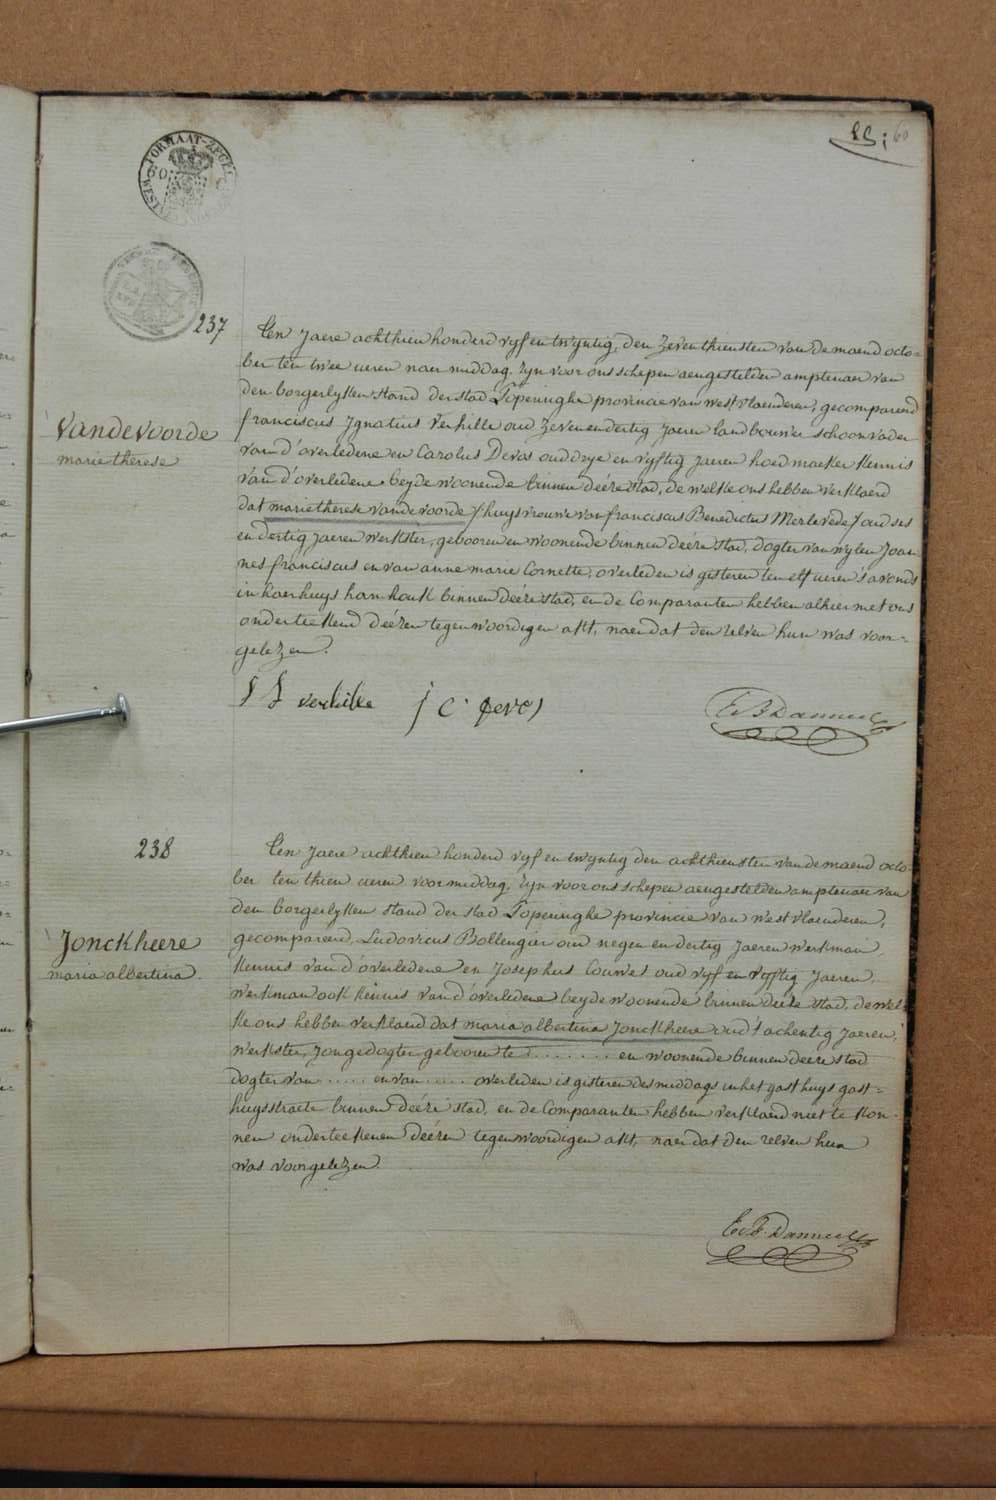 60
FORMAAT-ZEGEL
237
Vandevoorde
marie therese
Ten Jaere achthien honderd vyf en twyntig, den Zeventhiensten van de maend octo=
ber ten twee ueren naer middag, zyn voor ons schepen aengestelden amptenaer van
den borgerlyken stand der stad Poperinghe provincie van westvlaenderen, gecompareerd
franciscus Ignatius Verhille oud Zevenendertig Jaeren landbouwer schoonvader
van d'overledene en Carolus Devos oud drye en vyftig Jaeren hoedmaeker kennis
van d'overledene beyde woonende binnen deéze stad, de welke ons hebben verklaerd
dat marie therese vandevoorde /huysvrouwe van franciscus Benedictus Merlevede/ oud ses
en dertig jaeren werkster, gebooren en woonende binnen deéze stad, dogter van wylen Joan-
nes franciscus en van anne marie Cornette, overleden is gisteren ten elf ueren 's avonds
in haer huys binnen deéze stad, en de Comparanten hebben alhier met ons
onderteekend deézen tegenwoordigen akt, naer dat den zelven hun was voor=
gelezen.
verhille j c devos
238
Jonckheere
maria albertina
Ten Jaere achthien honderd vyf en twyntig den achthiensten van de maend octo-
ber ten thien ueren voormiddag, zyn voor ons schepen aengestelden amptenaer van
den borgerlyken stand der stad Poperinghe provincie van westvlaenderen,
gecompareerd, Ludovicus Bollengier oud negen en dertig Jaeren werkman,
kennis van d'overledene en Josephus Couwet oud vyf en vyftig Jaeren,
werkman ook kennis van d'overledene beyde woonende binnen deéze stad, de wel-
ke ons hebben verklaerd dat maria albertina Jonckheere oud 't achentig jaeren,
werkster, Jongedogter gebooren te ........ en woonende binnen deéze stad
dogter van ..... en van ..... overleden is gisteren des middags in het gasthuys gast=
huysstraete binnen deéze stad, en de Comparanten hebben verklaerd niet te kon-
nen onderteekenen deézen tegenwoordigen akt, naer dat den zelven hun
was voorgelezen.